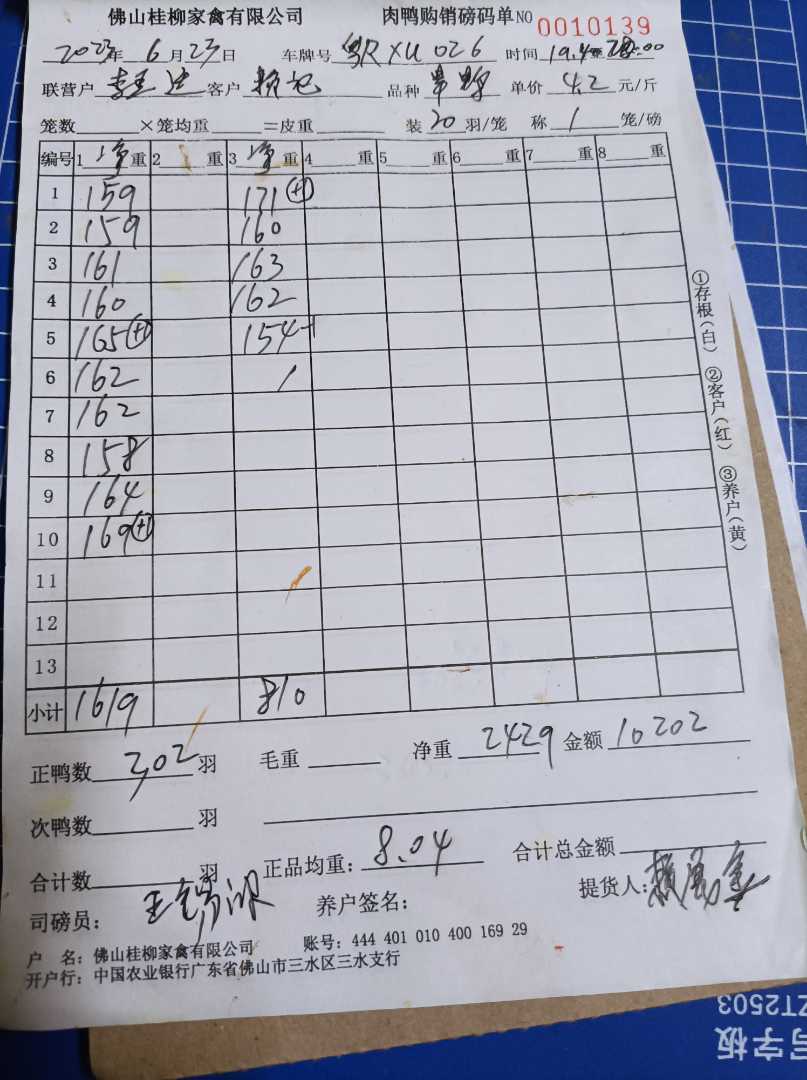 佛山桂柳家禽有限公司 肉鸭购销磅码单NO 0010139
2023年 6月23日 车牌号 XU026 时间
联营户 客户 品种 单价 4.2 元/斤
笼数 ×笼均重 =皮重 装 20 羽/笼 称 1 笼/磅
编号 1 净 重 2 重 3 净 重 4 重 5 重 6 重 7 重 8 重
1 159 171(+1)
2 159 160
3 161 163
4 160 162
5 165(+1) 154-1
6 162 /
7 162
8 158
9 164
10 169(+1)
11
12
13
小计 1619 810
正鸭数 302 羽 毛重 净重 2429 金额 10202
次鸭数 羽
合计数 羽 正品均重: 8.04 合计总金额
司磅员: 养户签名: 提货人:
户 名: 佛山桂柳家禽有限公司 账号: 444 401 010 400 169 29
开户行: 中国农业银行广东省佛山市三水区三水支行
①存根(白) ②客户(红) ③养户(黄)
ZT2503
写字板